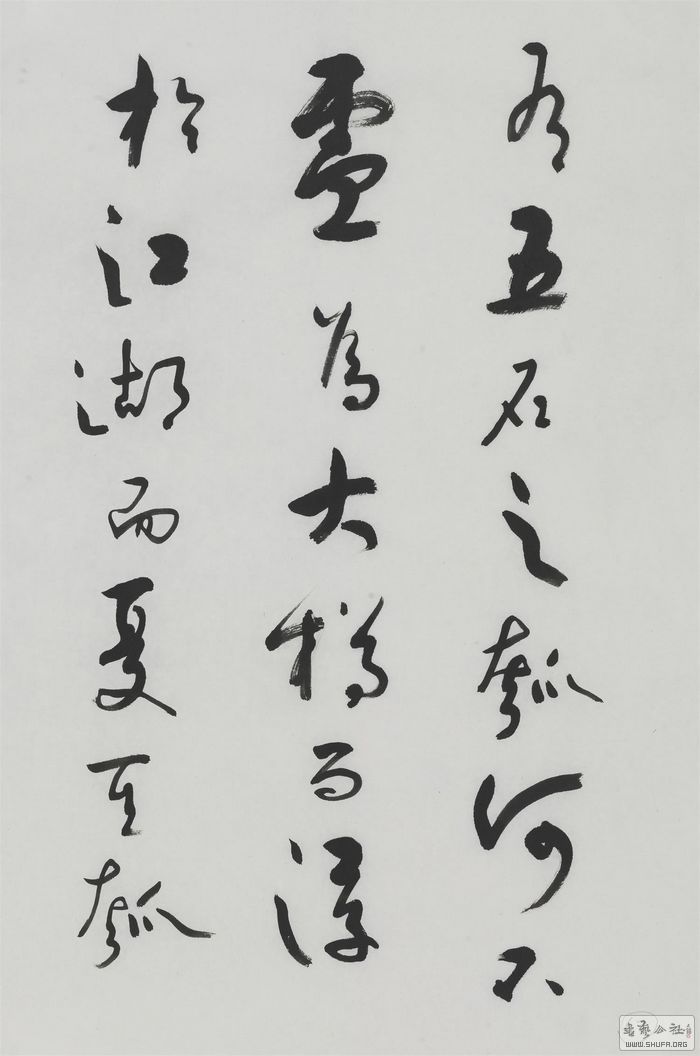 有五石之瓠何不
慮為大樽而浮
於江湖而憂其瓠
書藝公社
WWW.SHUFA.ORG